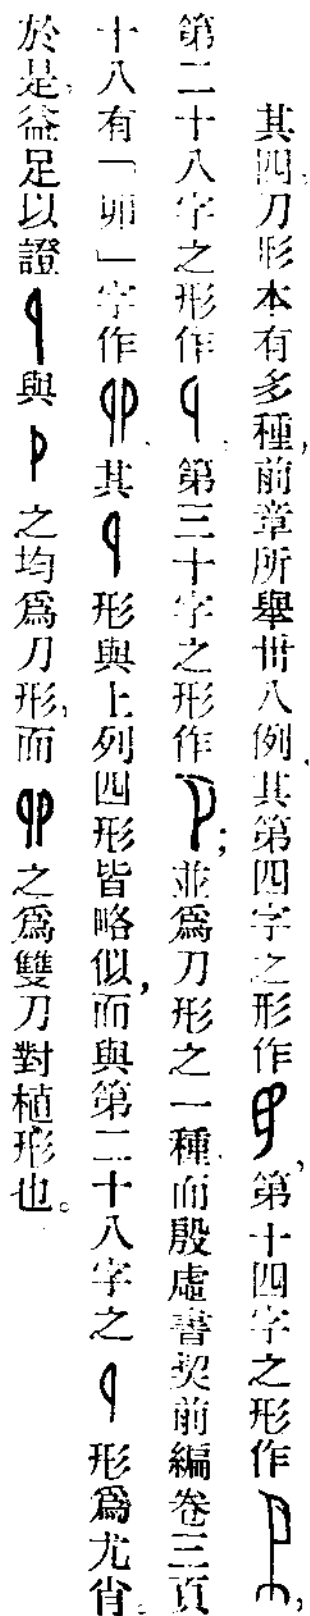 其四,刀形本有多種,前章所舉卅八例,其第四字之形作,第十四字之形作,
第二十八字之形作,第三十字之形作;並爲刀形之一種,而殷虛書契前編卷三頁
十八有「卯」字作、其形與上列四形皆略似,而與第二十八字之形爲尤肖。
於是,益足以證與之均爲刀形,而之爲雙刀對植形也。